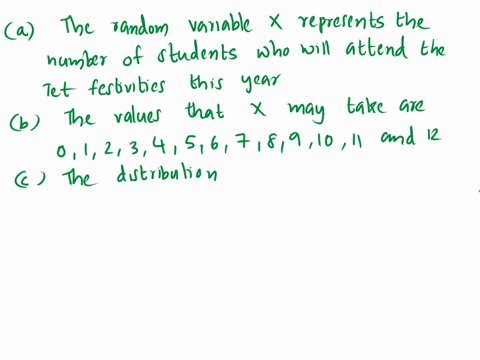 (a) The random variable X represents the
number of students who will attend the
Tet festivities this year
(b) The values that X may take are
0, 1, 2, 3, 4, 5, 6, 7, 8, 9, 10, 11 and 12
(c) The distribution